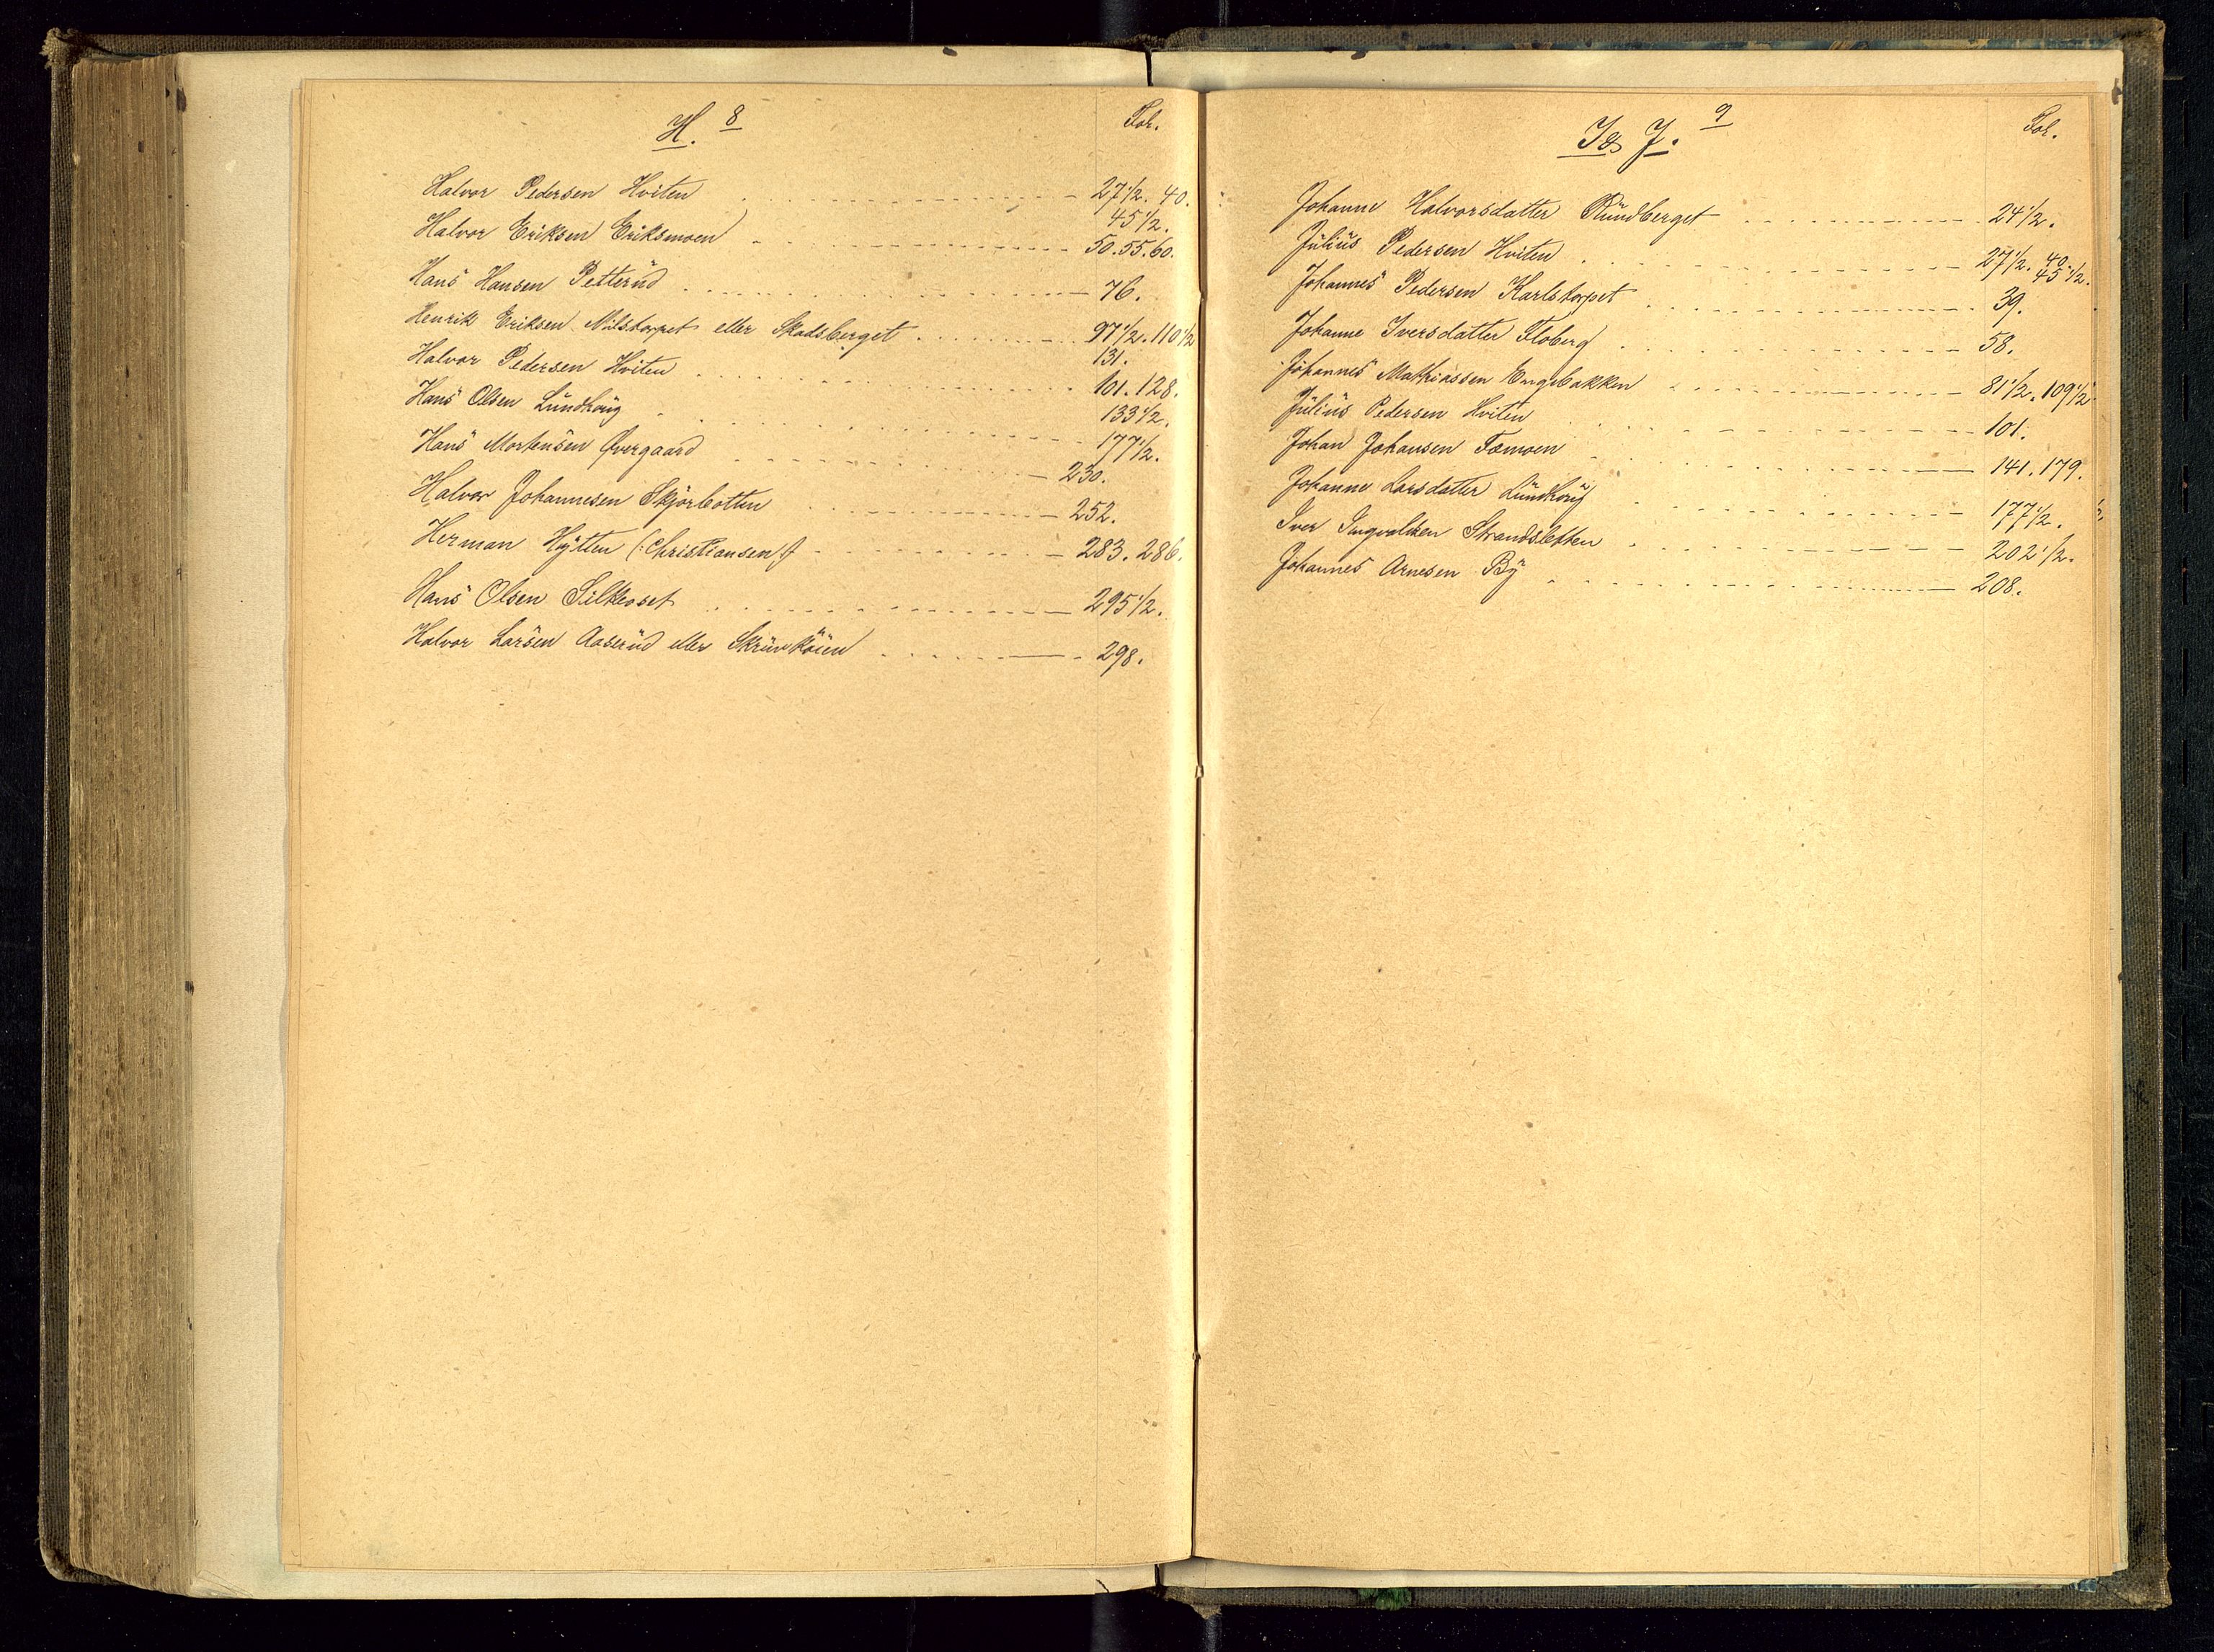 H. 8 Fol.
Halvor Pedersen Hviten 27 1/2. 40.
45 1/2.
Halvor Eriksen Eriksmoen 50. 55. 60.
Hans Hansen Petterud 76.
Henrik Eriksen Nilstorpet eller Skadsberget 97 1/2. 110 1/2
131.
Halvor Pedersen Hviten 101. 128.
133 1/2.
Hans Olsen Lundhøug 177 1/2.
Hans Mortensen Øvergaard 230.
Halvor Johannesen Skjørbotten 252.
Herman Hytten (:Christiansen:) 283. 286.
Hans Olsen Silkeoset 295 1/2.
Halvor Larsen Aaserud eller 298.
I & J. 9 Fol.
Johanne Halvorsdatter Rundberget 24 1/2.
Julius Pedersen Hviten 27 1/2. 40.
45 1/2.
Johannes Pedersen Karlstorpet 39.
Johanne Iversdatter Floberg 58.
Johannes Mathiassen Engebakken 81 1/2. 109 1/2
Julius Pedersen Hviten 101.
Johan Johansen Tømoen 141. 179.
Johanne Larsdatter Lundhøug 177 1/2.
Iver Ingvaldsen Strandsletten 202 1/2.
Johannes Arnesen By 208.